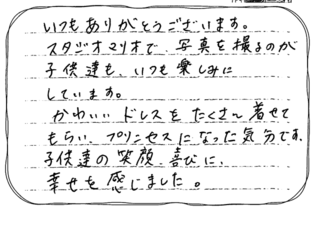 いつもありがとうございます。
スタジオマリオで、写真を撮るのが
子供達も、いつも楽しみに
しています。
かわいいドレスをたくさん着せて
もらい、プリンセスになった気分です。
子供達の笑顔、喜びに、
幸せを感じました。